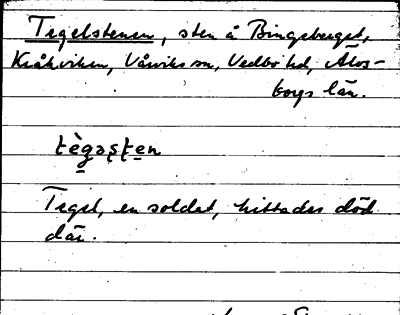 Tegelstenen, sten å Bingsberget,
Kråkviken, Vårviks sn, Vedbo hd, Älvs-
borgs län.
tègəʂʈen
Tegel, en soldat, hittades död
där.